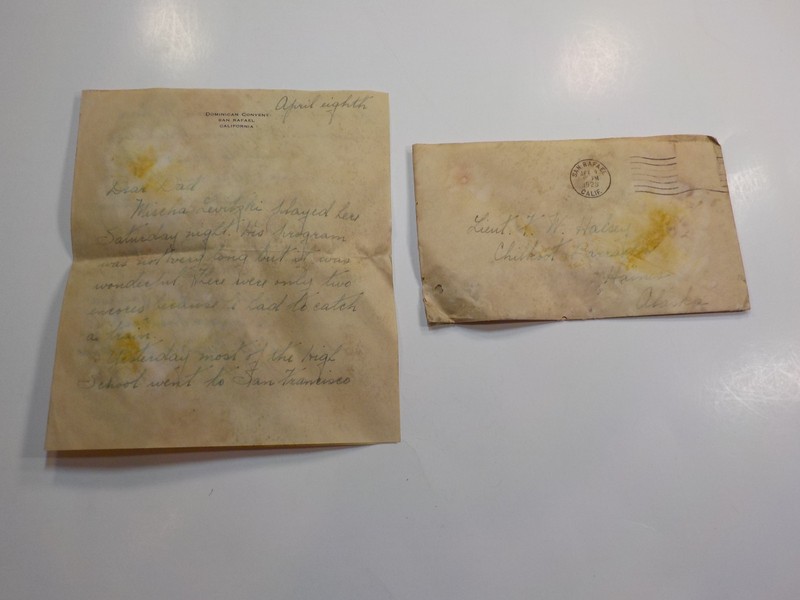 April eighth
DOMINICAN CONVENT
SAN RAFAEL
CALIFORNIA
Dear Dad
Mischa Levitzki played here
Saturday night. His program
was not very long but it was
wonderful. There were only two
encores because he had to catch
a train.
Yesterday most of the High
School went to San Francisco
SAN RAFAEL
APR
PM
1929
CALIF.
Lieut. W. Halsey
Chilkoot Barracks
Haines
Alaska